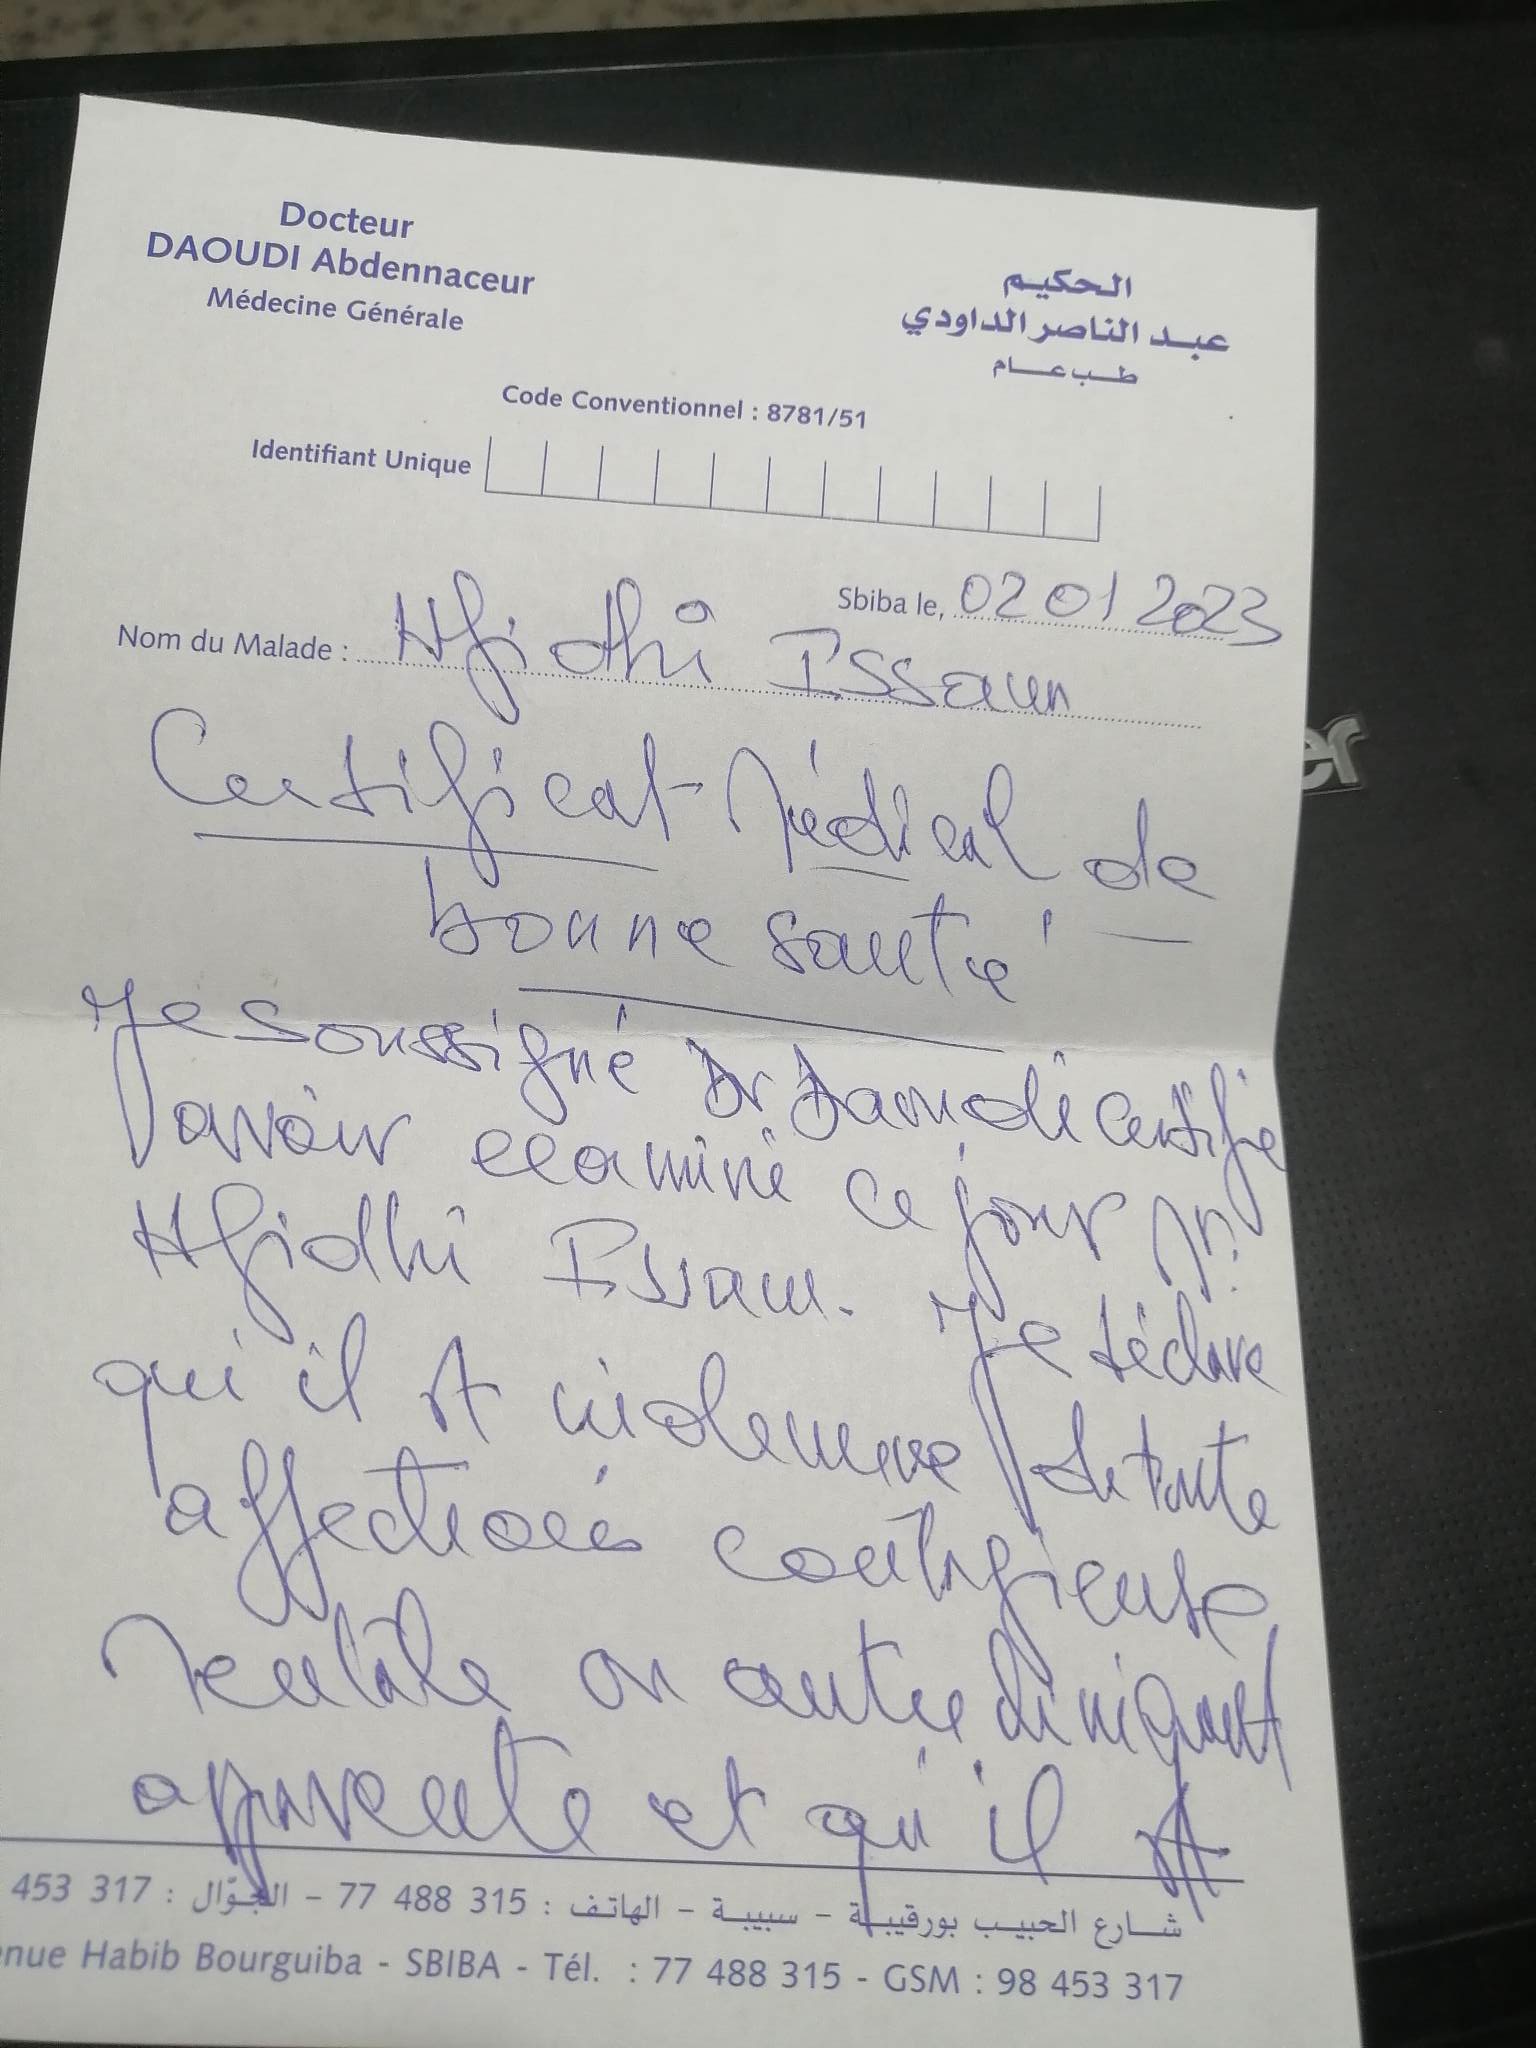 Docteur
DAOUDI Abdennaceur
Médecine Générale
الحكيم
عبد الناصر الداودي
طب عام
Code Conventionnel : 8781/51
Identifiant Unique
Sbiba le, 02 01 2023
Nom du Malade : Hfidhi Issam
Certificat Médical de
bonne santé
Je soussigné Dr Daoudi certifie
avoir examiné ce jour Mr
Hfidhi Issam. Je déclare
qu'il est indemne de toute
affection contagieuse
mentale ou autre
apparente et qu'il est
شارع الحبيب بورقيبة - سبيبة - الهاتف : 315 488 77 - الجوّال : 317 453
nue Habib Bourguiba - SBIBA - Tél. : 77 488 315 - GSM : 98 453 317
er